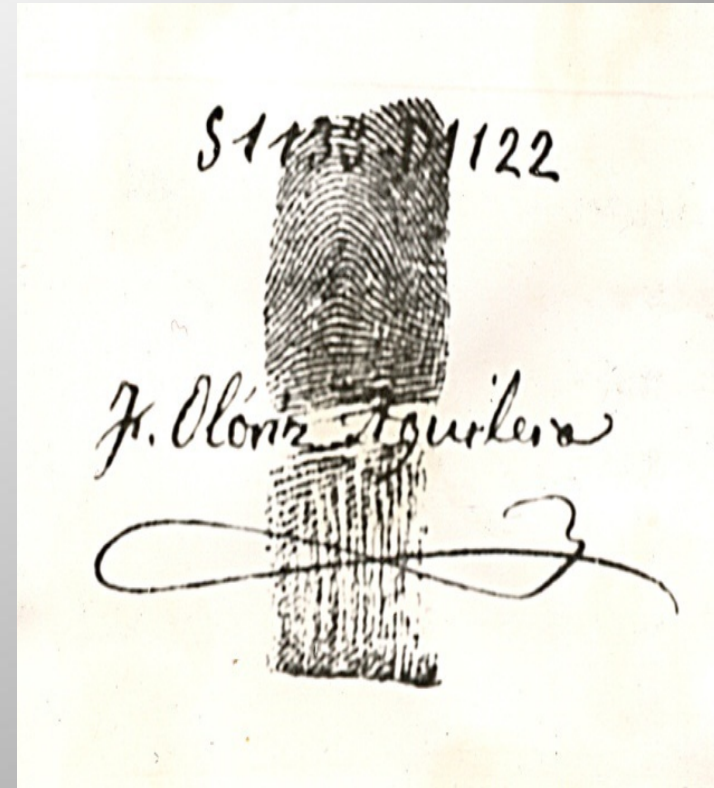 S1133 D1122
F. Olóriz Aguilera